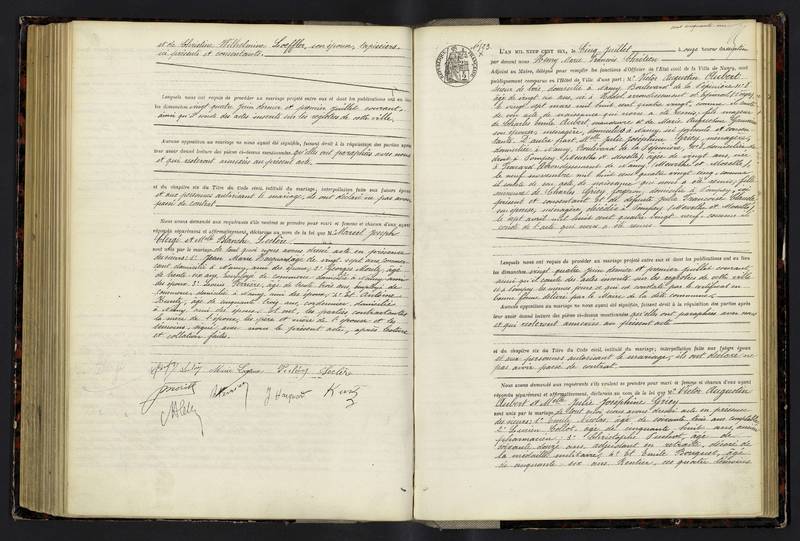 et de Christine Wilhelmine Loeffler, son épouse, tapissiers.
ici présents et consentants.
Lesquels nous ont requis de procéder au mariage projeté entre eux et dont les publications ont eu lieu
les dimanches vingt quatre juin dernier et premier juillet courant,
ainsi qu'il conste des actes inscrits sur les registres de cette ville.
Aucune opposition au mariage ne nous ayant été signifiée, faisant droit à la réquisition des parties après
leur avoir donné lecture des pièces ci-dessus mentionnées, qu'elles ont paraphées avec nous
et qui resteront annexées au présent acte.
et du chapitre six du Titre du Code civil, intitulé du mariage, interpellation faite aux futurs époux
et aux personnes autorisant le mariage, ils ont déclaré ne pas avoir
passé de contrat
Nous avons demandé aux requérants s'ils veulent se prendre pour mari et femme et chacun d'eux ayant
répondu séparément et affirmativement, déclarons au nom de la loi que M. Marcel Joseph
et Mlle Blanche Leclère
sont unis par le mariage de tout quoi nous avons dressé acte en présence
des sieurs: 1° Jean Marie Hacquart, âgé de vingt sept ans, commer-
çant domicilié à Nancy, ami des époux; 2° Georges
de trente six ans, employé de commerce domicilié à Nancy, ami
des époux; 3° Louis Perrière, âgé de trente trois ans, employé de
commerce, domicilié à Nancy, ami des époux; 4° Et Antoine
Kuntz, âgé de cinquante trois ans, cordonnier, domicilié
à Nancy ami des époux. Et ont, les parties contractantes
la mère de l'époux, les père et mère de l'épouse et les
témoins, signé avec nous le présent acte, après lecture
et collation faite.
Leclère
J Hacquart Kuntz
N° 523
L'AN MIL NEUF CENT SIX, le Cinq Juillet à onze heures du matin
par devant nous Henry Marie François Chrétien
Adjoint au Maire, délégué pour remplir les fonctions d'Officier de l'État civil de la Ville de Nancy, sont
publiquement comparus en l'Hôtel de Ville d'une part: M. Victor Augustin Aubert
domicilié à Nancy, Boulevard de la Pépinière n°
âgé de vingt six ans, né à
le vingt sept mars mil huit cent quatre vingt, comme il conste
de son acte de naissance qui nous a été remis, fils majeur
de Charles Emile Aubert, manœuvre et de Marie Augustine
son épouse, ménagère, domiciliés à Nancy, ici présents et consen-
tants. D'autre part Mlle Julie Joséphine Griey, ménagère,
domiciliée à Nancy, Boulevard de la Pépinière, et domiciliée de
droit à Pompey (Meurthe et Moselle), âgée de vingt ans, née
à Frouard arrondissement de Nancy (Meurthe et Moselle),
le neuf novembre mil huit cent quatre vingt cinq, comme
il conste de son acte de naissance qui nous a été remis, fille
mineure de Charles Griey domicilié à Pompey, ici
présent et consentant et de défunte Julie Françoise
son épouse, ménagère, décédée à Pompey (Meurthe et Moselle),
le sept avril mil huit cent quatre vingt neuf comme il
conste de l'acte qui nous a été remis
Lesquels nous ont requis de procéder au mariage projeté entre eux et dont les publications ont eu lieu
les dimanches vingt quatre juin dernier et premier juillet courant,
ainsi qu'il conste des actes inscrits sur les registres de cette ville
et à Pompey les mêmes jours ce qui est constaté par le certificat en
bonne forme délivré par le Maire de la dite commune
Aucune opposition au mariage ne nous ayant été signifiée, faisant droit à la réquisition des parties après
leur avoir donné lecture des pièces ci-dessus mentionnées qu'elles ont paraphées avec nous
et qui resteront annexées au présent acte
et du chapitre six du Titre du Code civil, intitulé du mariage, interpellation faite aux futurs époux
et aux personnes autorisant le mariage, ils ont déclaré ne
pas avoir passé de contrat
Nous avons demandé aux requérants s'ils veulent se prendre pour mari et femme et chacun d'eux ayant
répondu séparément et affirmativement, déclarons au nom de la loi que M. Victor Augustin
Aubert et Mlle Julie Joséphine Griey
sont unis par le mariage de tout quoi nous avons dressé acte en présence
des sieurs: 1° Emile Nicolas, âgé de soixante trois ans, comptable
2° Lucien Collot, âgé de cinquante huit ans, ancien
pharmacien; 3° Christophe âgé de
soixante douze ans, adjudant en retraite, décoré de
la médaille militaire; 4° Et Emile Bouquet, âgé
de cinquante six ans, Rentier, ces quatre témoins